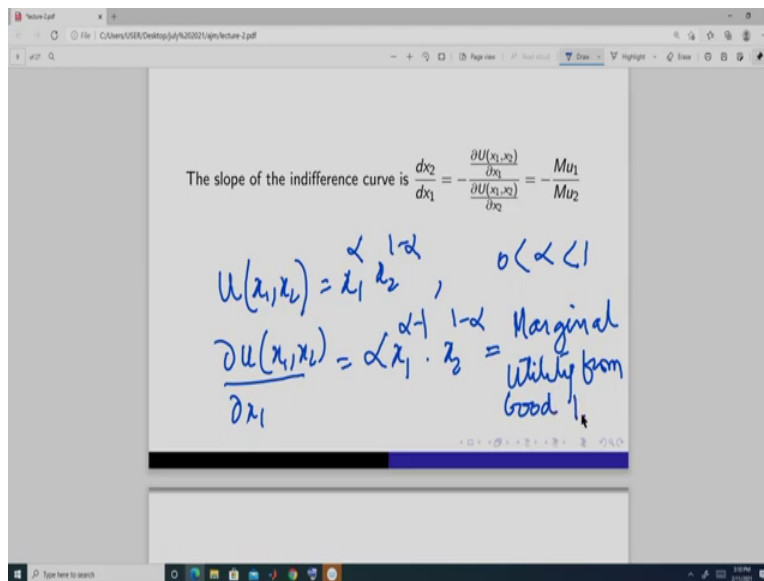 lecture-2.pdf
File | C:/Users/USER/Desktop/july%202021/ajm/lecture-2.pdf
Page view Read aloud Draw Highlight Erase
The slope of the indifference curve is dx₂/dx₁ = − (∂U(x₁,x₂)/∂x₁)/(∂U(x₁,x₂)/∂x₂) = − Mu₁/Mu₂
U(x₁,x₂) = x₁^α x₂^(1-α) , 0 < α < 1
∂U(x₁,x₂)/∂x₁ = αx₁^(α-1) · x₂^(1-α) = Marginal
Utility from
Good 1.
Type here to search